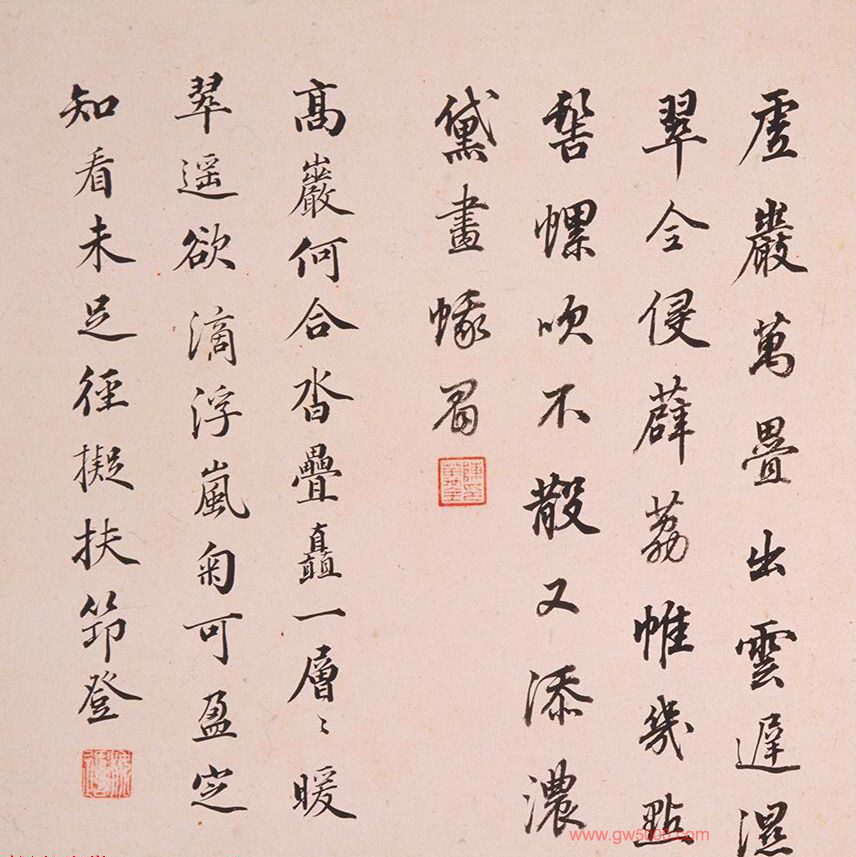 虛巖萬疊出雲遲濕
翠全侵薜荔帷幾點
髻螺吹不散又添濃
黛畫蛾眉
高巖何合沓疊矗一層〻暖
翠遥欲滴浮嵐匊可盈定
知看未足徑擬扶筇登
www.gw5000.com